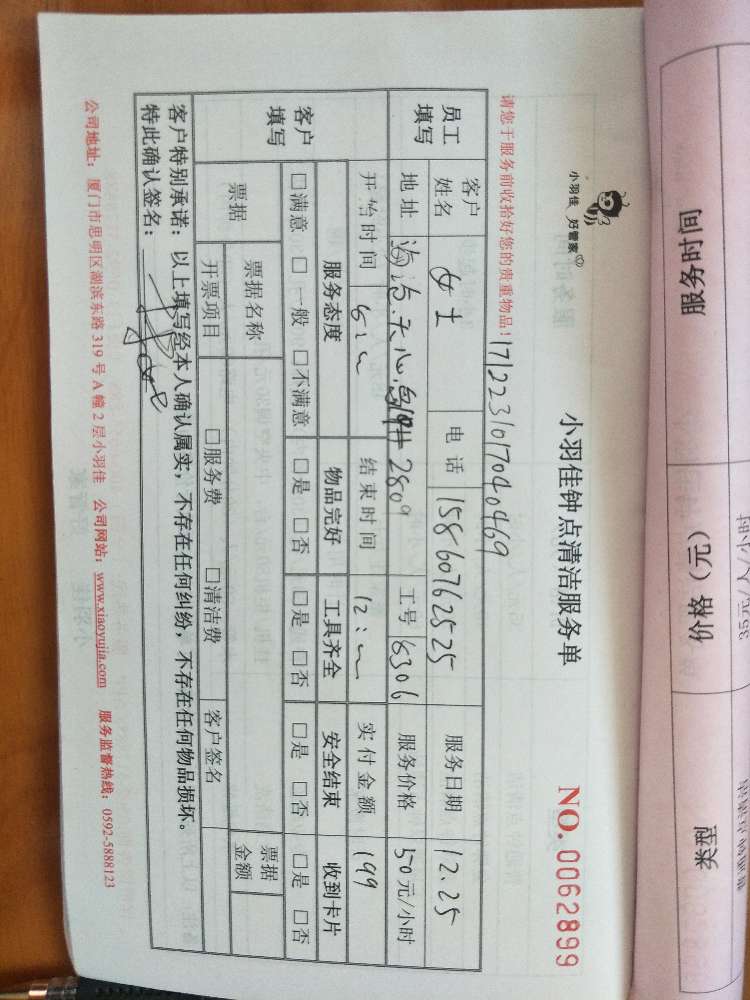 小羽佳 好管家
小羽佳钟点清洁服务单
NO. 0062899
请您于服务前收拾好您的贵重物品!
1712231017040469
员工填写
客户姓名 女士 电话 15860762525 服务日期 12.25
地址 海沧.天心岛 2809 工号 6306 服务价格 50元/小时
开始时间 结束时间 12: 实付金额 199
客户填写
服务态度 物品完好 工具齐全 安全结束 收到卡片
□满意 □一般 □不满意 □是 □否 □是 □否 □是 □否 □是 □否
票据 票据名称 票据金额
开票项目 □服务费 □清洁费 客户签名
客户特别承诺：以上填写经本人确认属实，不存在任何纠纷，不存在任何物品损坏。
特此确认签名：
公司地址：厦门市思明区湖滨东路319号A幢2层小羽佳 公司网站：www.xiaoyujia.com 服务监督热线：0592-5888123
服务时间 价格（元） 类型
35元/人/小时